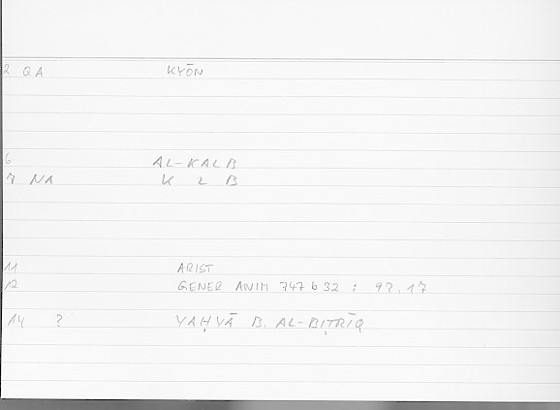 2 QA KYŌN
6 AL-KALB
7 NA K L B
11 ARIST
12 GENER ANIM 747 b 32 : 92.17
14 ? YAḤYĀ B. AL-BIṬRĪQ